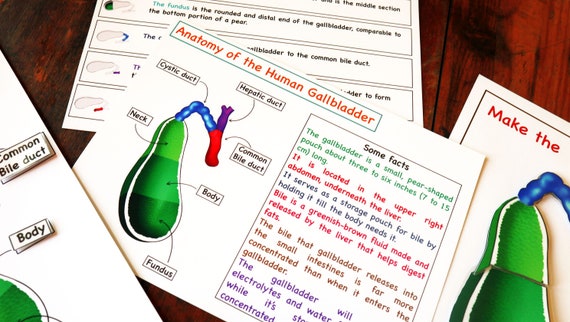 and is the middle section
The fundus is the rounded and distal end of the gallbladder, comparable to
the bottom portion of a pear.
gallbladder to the common bile duct.
gallbladder to form
Anatomy of the Human Gallbladder
Cystic duct
Hepatic duct
Neck
Common
Bile duct
Body
Fundus
Some facts
The gallbladder is a small, pear-shaped
pouch about three to six inches (7 to 15
cm) long.
It is located in the upper right
abdomen, underneath the liver.
It serves as a storage pouch for bile by
holding it till the body needs it.
Bile is a greenish-brown fluid made and
released by the liver that helps digest
fats.
The bile that gallbladder releases into
the small intestines is far more
concentrated than when it enters the
gallbladder.
The gallbladder will
electrolytes and water
while it's
concentrated
Common
Bile duct
Body
Make the